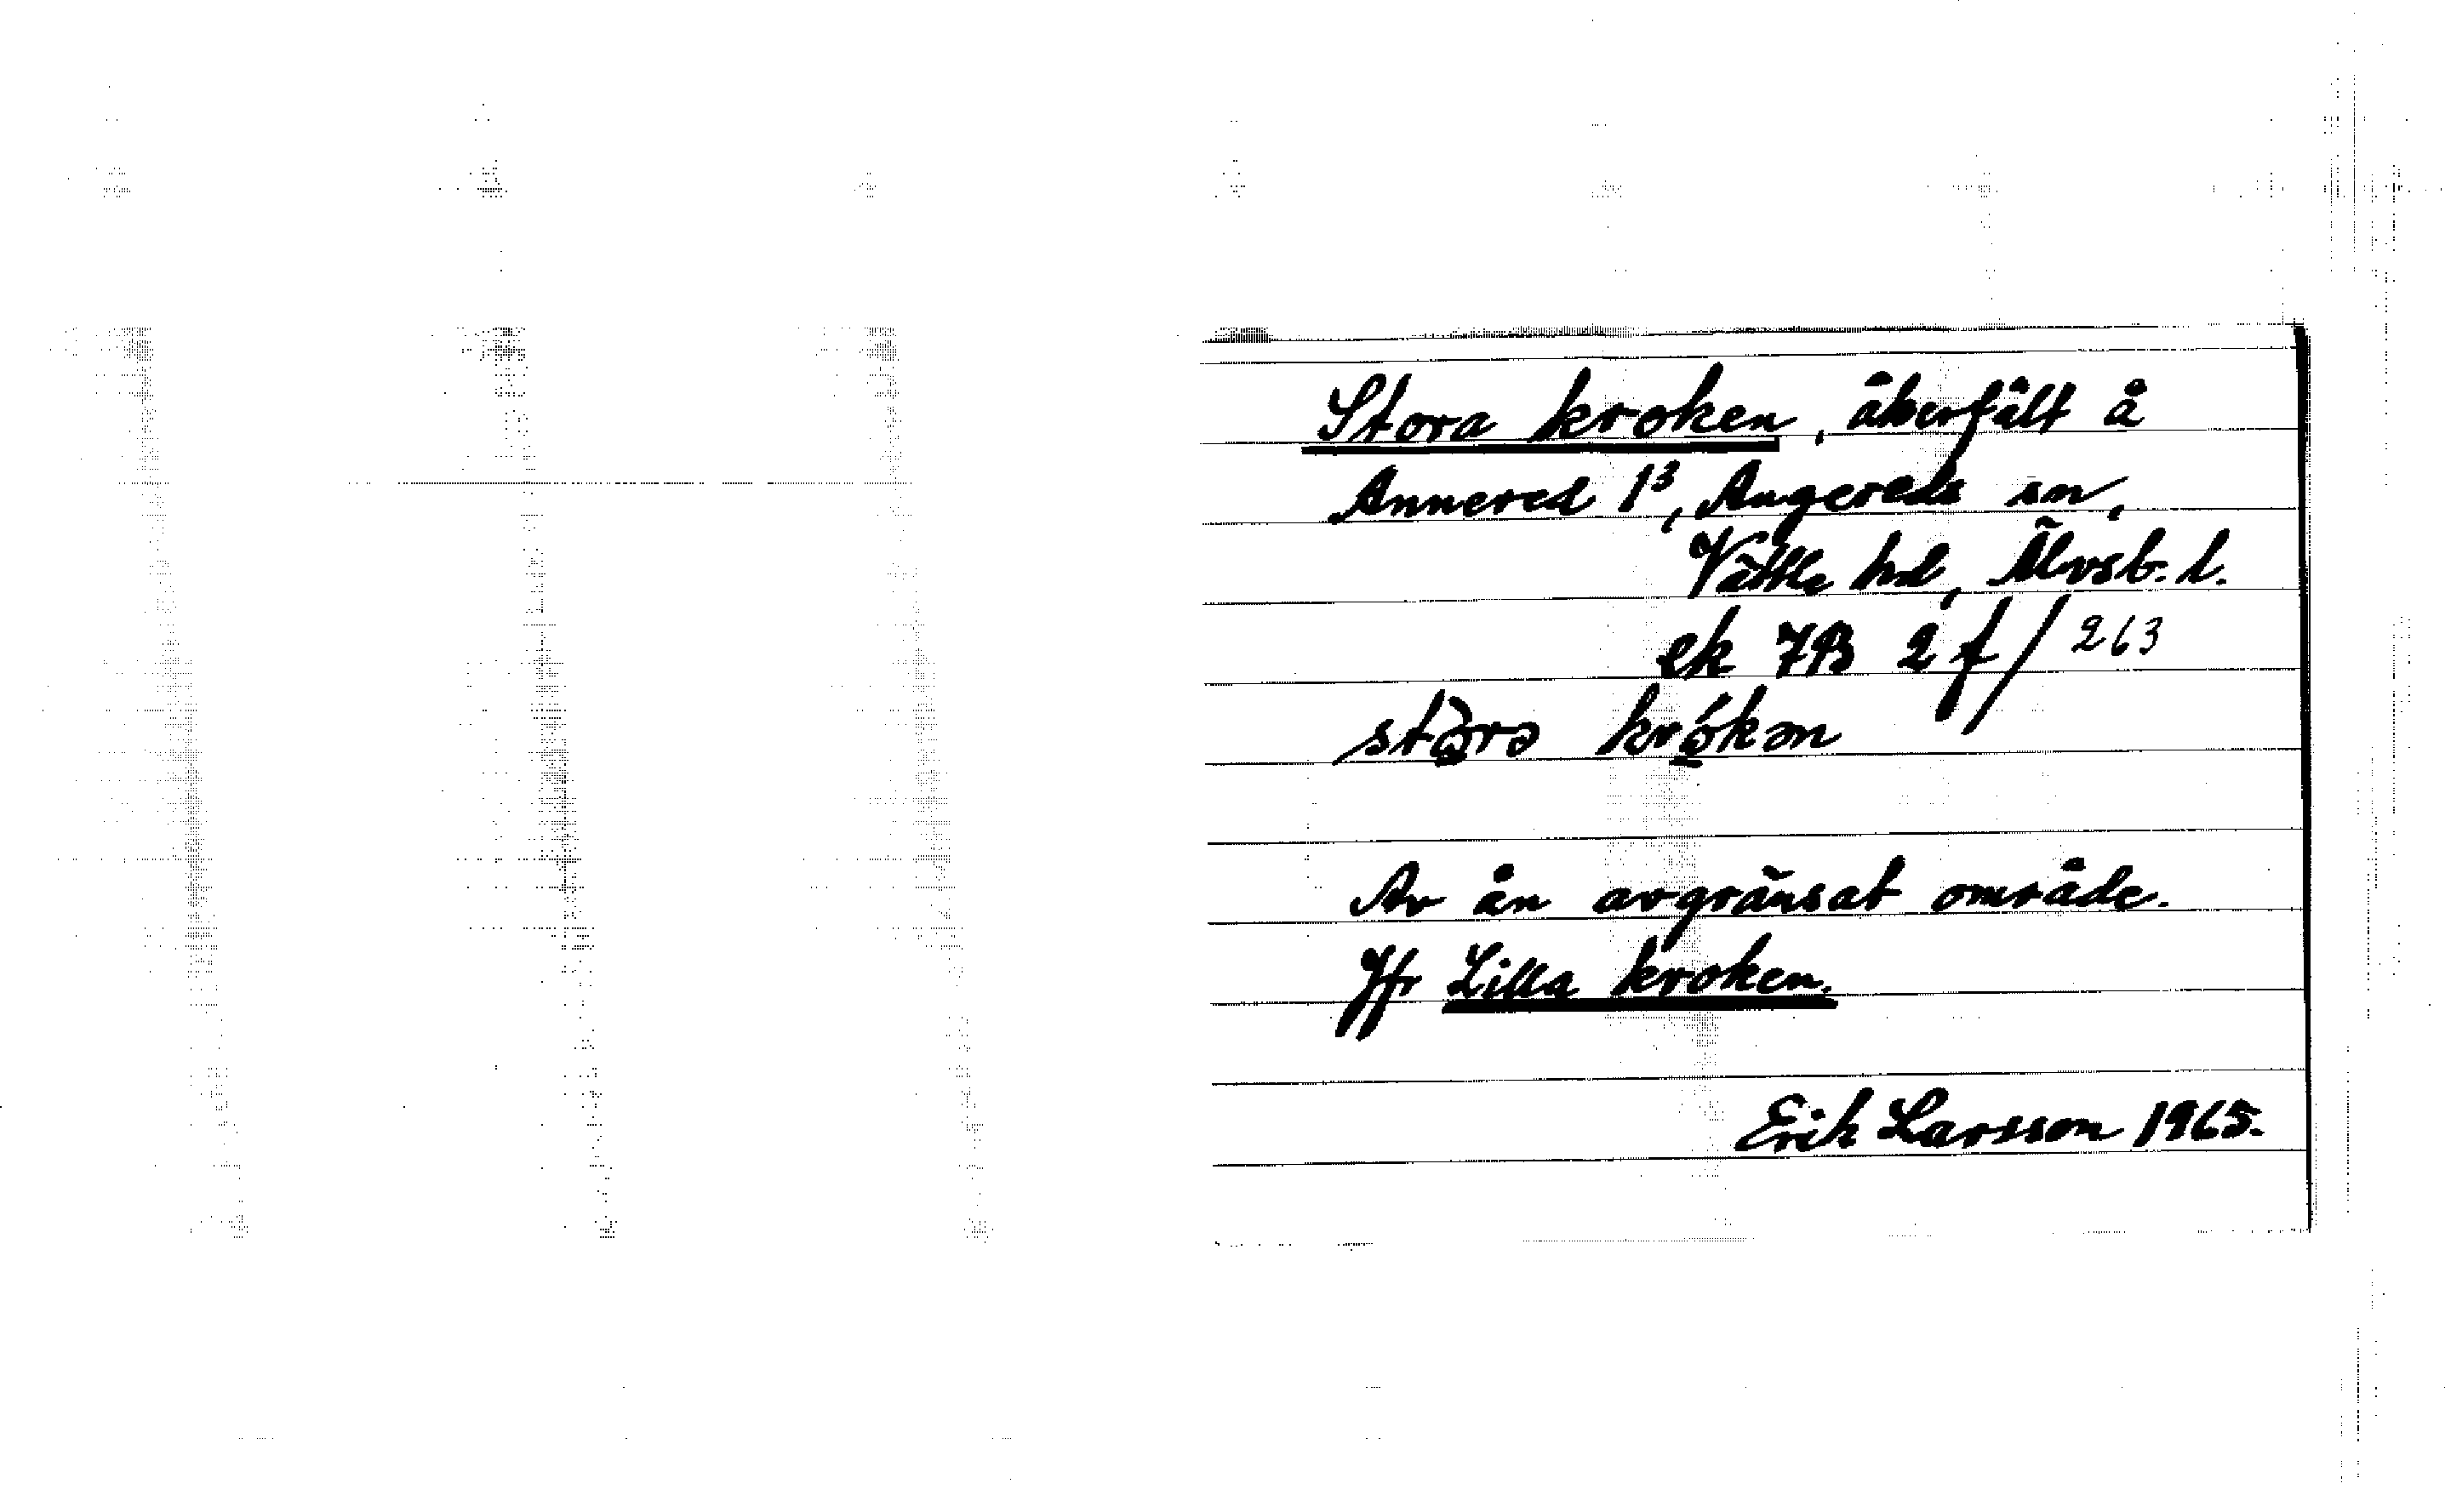 Stora kroken, åkerfält å
Annered 1³, Angereds sn,
Vättle hd, Älvsb. l.
ek 7B 2 f/263
krókən
Av ån avgränsat område.
Jfr Lilla kroken.
Erik Larsson 1965.